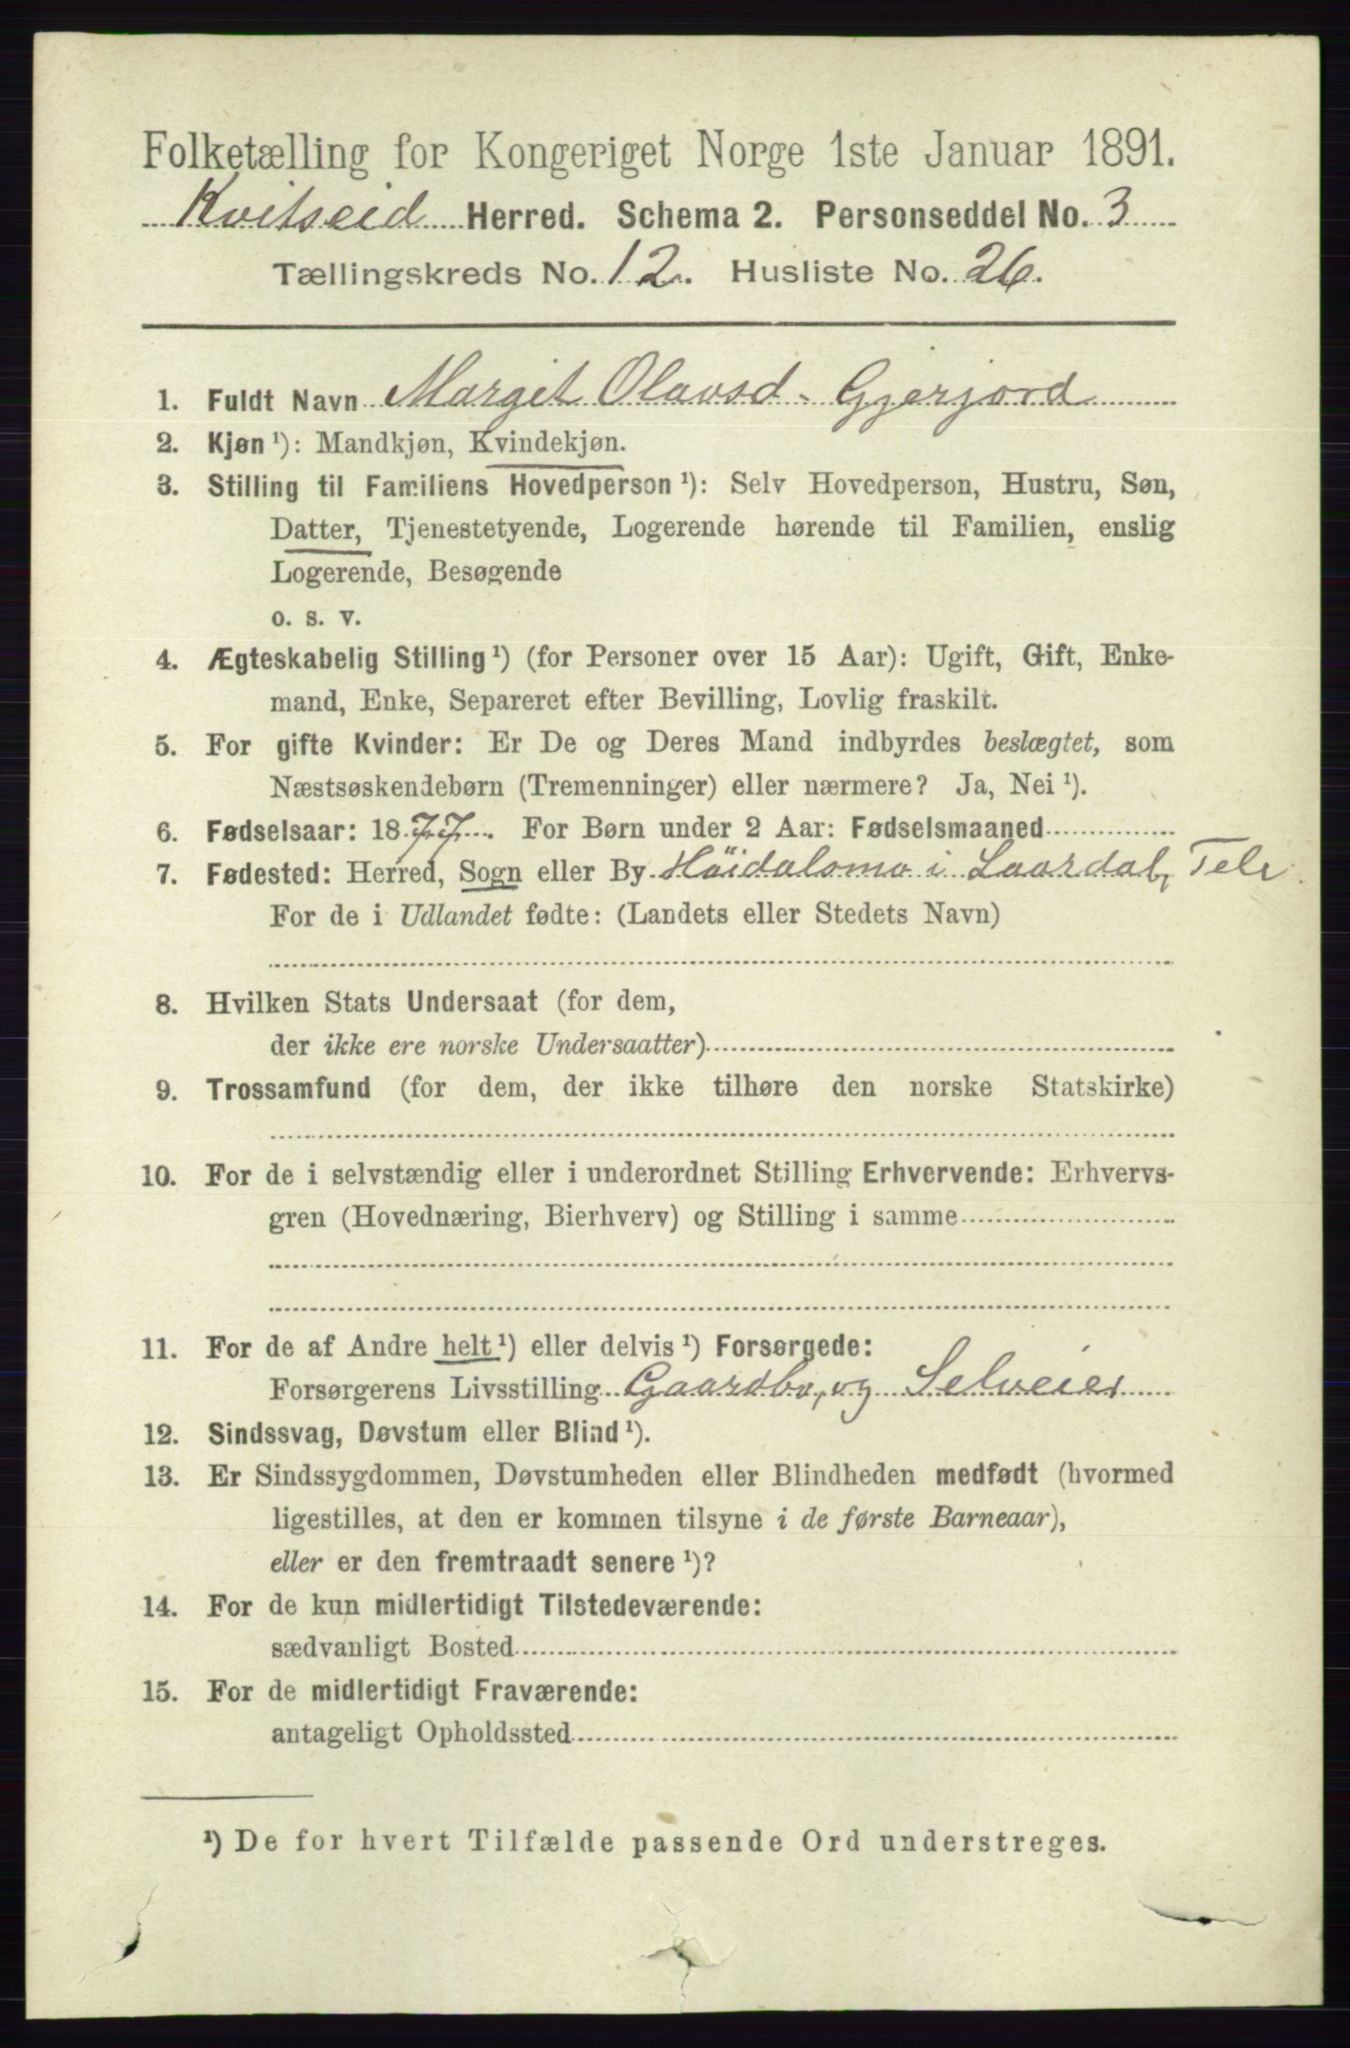 Folketælling for Kongeriget Norge 1ste Januar 1891.
Kvitseid Herred. Schema 2. Personseddel No. 3
Tællingskreds No. 12. Husliste No. 26.
1. Fuldt Navn Margit Olavsd. Gjerjord
2. Kjøn ¹): Mandkjøn, Kvindekjøn.
3. Stilling til Familiens Hovedperson ¹): Selv Hovedperson, Hustru, Søn,
Datter, Tjenestetyende, Logerende hørende til Familien, enslig
Logerende, Besøgende
o. s. v.
4. Ægteskabelig Stilling ¹) (for Personer over 15 Aar): Ugift, Gift, Enke-
mand, Enke, Separeret efter Bevilling, Lovlig fraskilt.
5. For gifte Kvinder: Er De og Deres Mand indbyrdes beslægtet, som
Næstsøskendebørn (Tremenninger) eller nærmere? Ja, Nei ¹).
6. Fødselsaar: 1877. For Børn under 2 Aar: Fødselsmaaned
7. Fødested: Herred, Sogn eller By Höidalsmo i Laardal, Tele
For de i Udlandet fødte: (Landets eller Stedets Navn)
8. Hvilken Stats Undersaat (for dem,
der ikke ere norske Undersaatter)
9. Trossamfund (for dem, der ikke tilhøre den norske Statskirke)
10. For de i selvstændig eller i underordnet Stilling Erhvervende: Erhvervs-
gren (Hovednæring, Bierhverv) og Stilling i samme
11. For de af Andre helt ¹) eller delvis ¹) Forsørgede:
Forsørgerens Livsstilling Gaardbr. og Selveier
12. Sindssvag, Døvstum eller Blind ¹).
13. Er Sindssygdommen, Døvstumheden eller Blindheden medfødt (hvormed
ligestilles, at den er kommen tilsyne i de første Barneaar),
eller er den fremtraadt senere ¹)?
14. For de kun midlertidigt Tilstedeværende:
sædvanligt Bosted
15. For de midlertidigt Fraværende:
antageligt Opholdssted
¹) De for hvert Tilfælde passende Ord understreges.